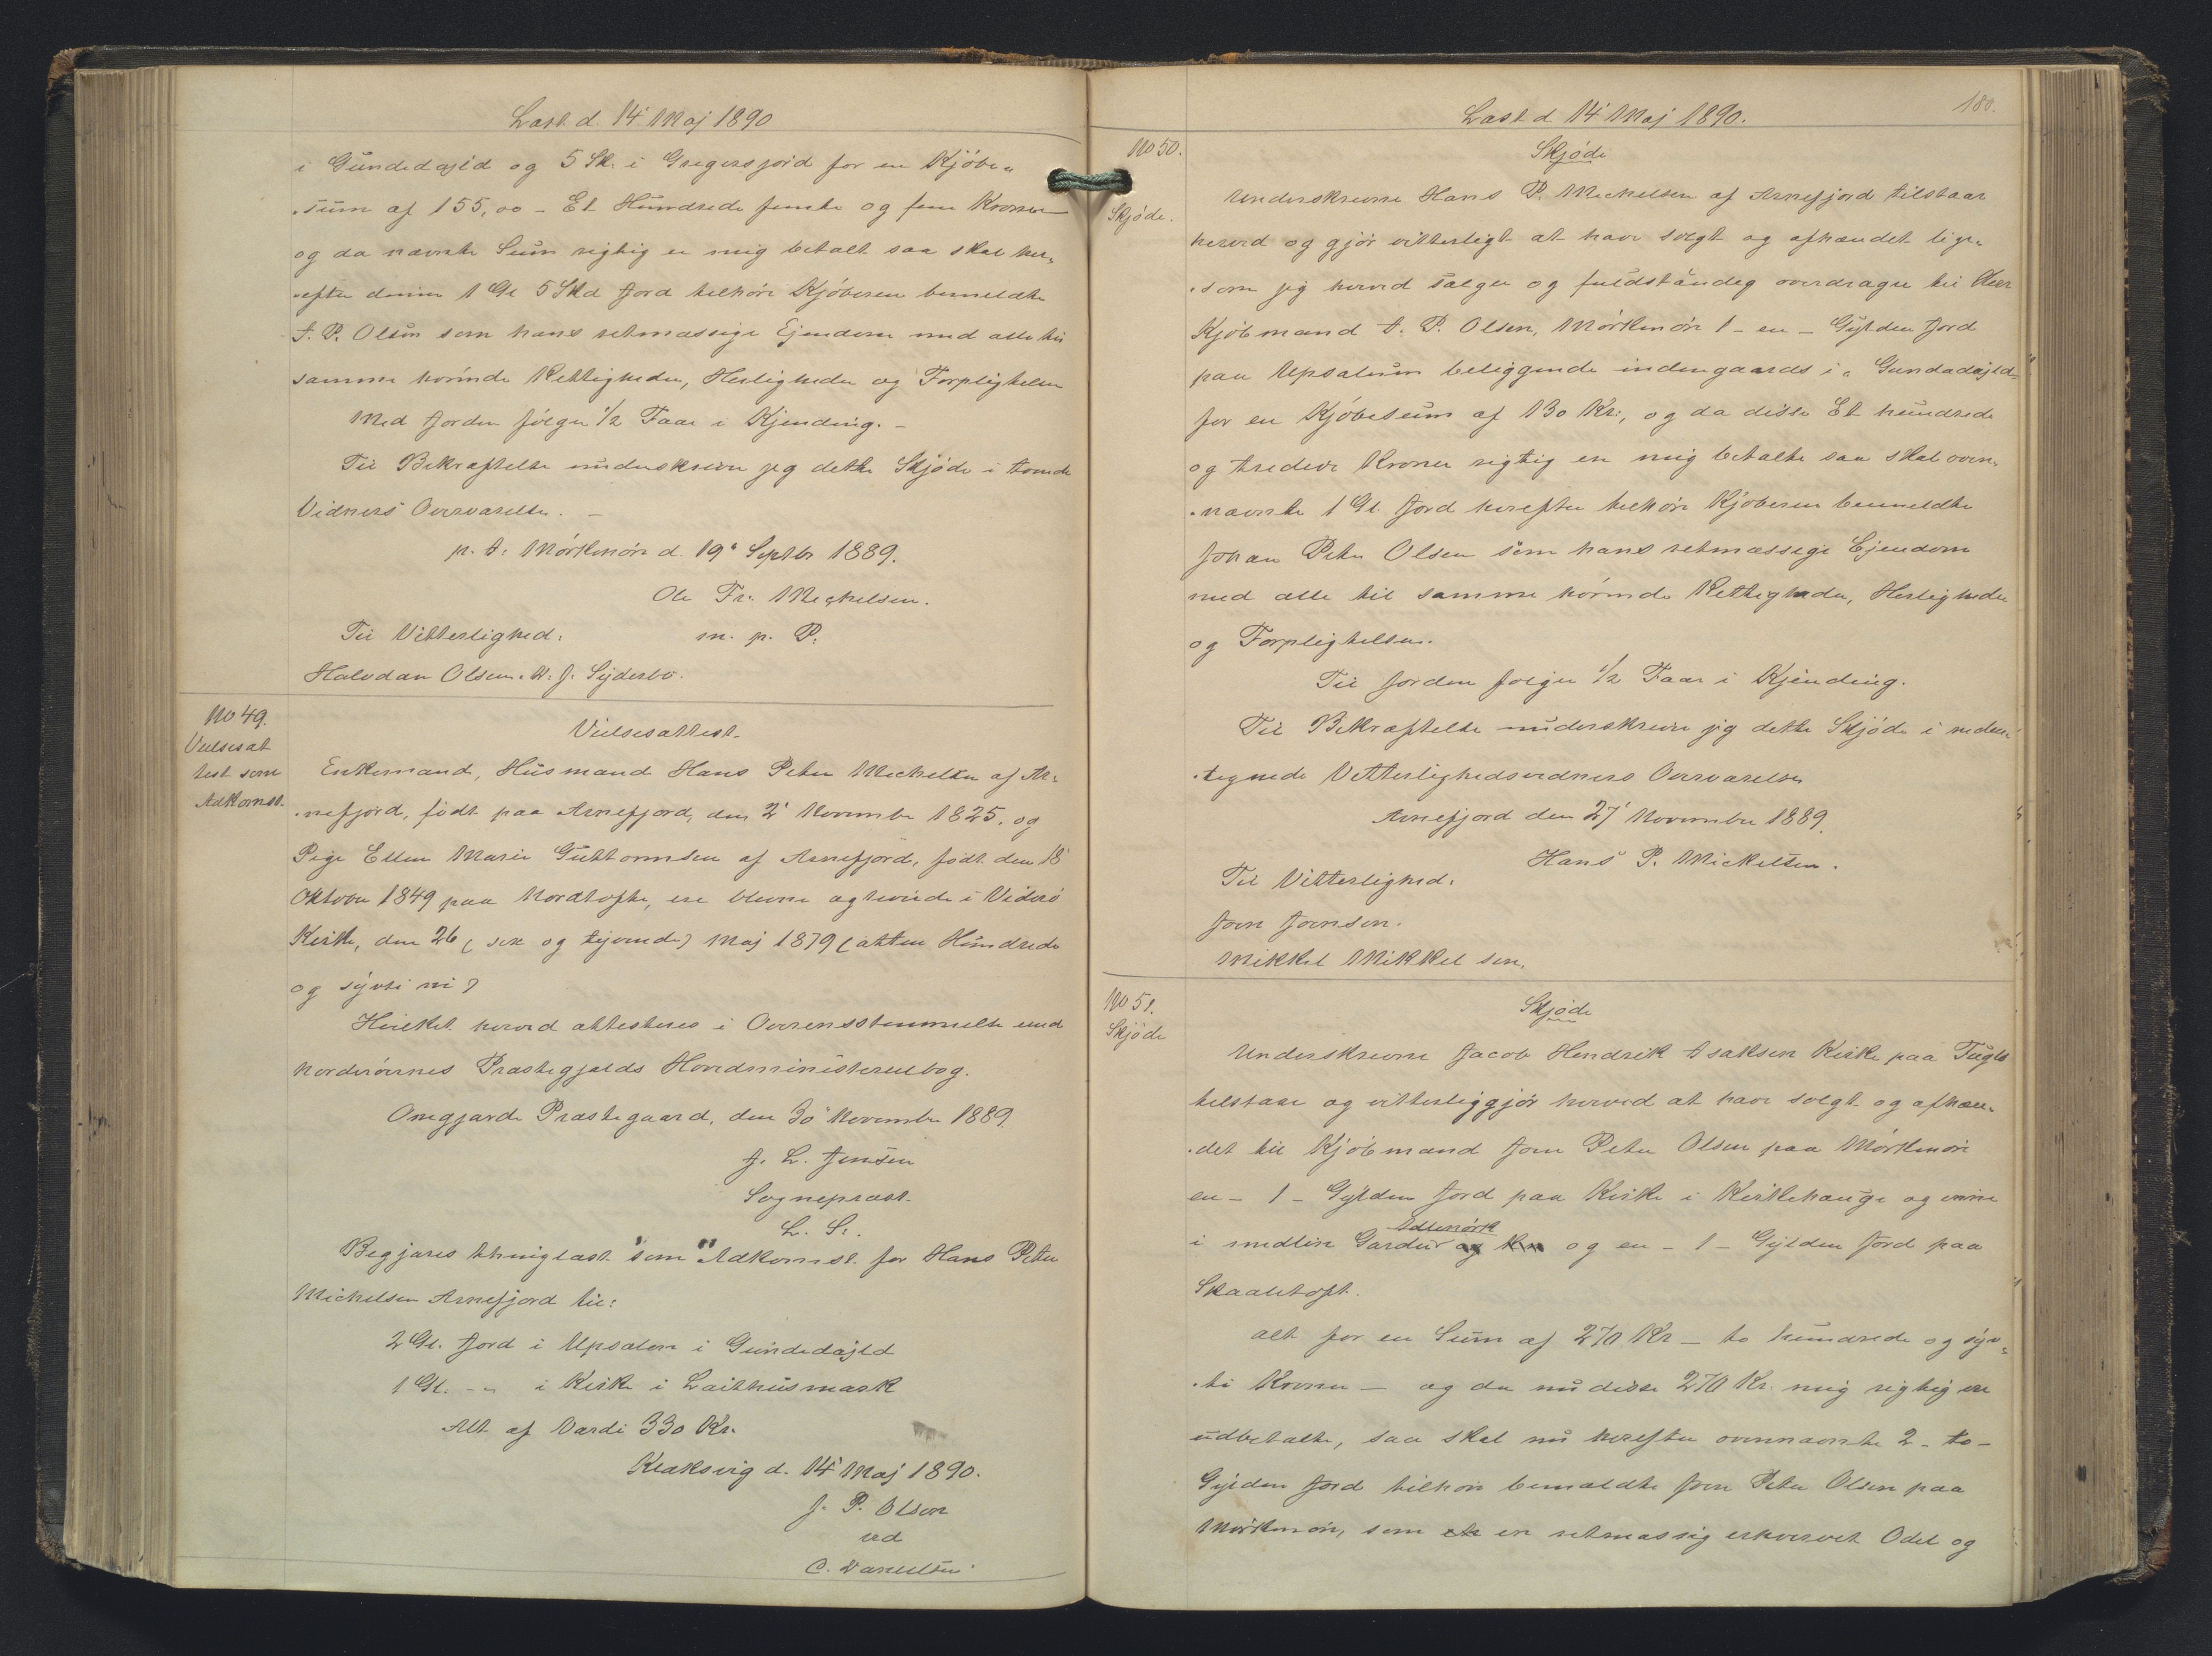 Læst d. 14' Maj 1890
i Gundedajld og 5 Sk. i Gregersjord for en Kjöbe-
-sum af 155,00 - Et Hundrede femte og fem Kroner
og da nævnte Sum rigtig er mig betalt saa skal her-
-efter denne 1 Gl 5 Skd Jord tilhöre Kjöberen bemeldte
J. P. Olsen som hans retmæssige Ejendom med alle til
samme hörende Rettigheder, Herligheder og Forpligtelser
Med Jorden fölger 1/2 Faar i Kjending. -
Til Bekræftelse underskriver jeg dette Skjöde i tvende
Vidners Overværelse. -
p. t. Mörkenöre d. 19' Septbr 1889.
Ole Fr. Mechelsen.
Til Vitterlighed: m. p. P.
Halvdan Olsen. W. J. Syderbö.
No 49.
Vielsesat
test som
Adkomst.
Vielsesattest.
Enkemand, Husmand Hans Peter Mechelsen af Ar-
-nefjord, födt paa Arnefjord, den 2' November 1825, og
Pige Ellen Marie Guttormsen af Arnefjord, födt den 18'
Oktober 1849 paa Nordtofte, ere blevne ægteviede i Viderö
Kirke, den 26 (sex og tyvende) Maj 1879 (atten Hundrede
og syvti ni)
Hvilket herved attesteres i Overensstemmelse med
Norderöernes Præstegjælds Hovedministerialbog.
Onegjærde Præstegaard, den 30' November 1889.
J. L. Jensen
Sogneprest.
L. S.
Begjæres thinglæst "som" Adkomst for Hans Peter
Michelsen Arnefjord til:
2 Gl. Jord i Upsalom i Gundedajld
1 Gl. -"- i Kirke i Laithusmark
Alt af Værdi 330 Kr.
Klaksvig d. 14' Maj 1890.
J. P. Olsen
ved
C. Danielsen
180.
Læst d 14' Maj 1890.
No 50.
Skjöde.
Skjöde
Underskrevne Hans P. Mechelsen af Arnefjord tilstaar
herved og gjör vitterligt at have solgt og afhændet lige-
-som jeg herved sælger og fuldständig overdrager til Herr
Kjöbmand J. P. Olsen, Mörkenöre 1 - en - Gylden Jord
paa Upsalum beliggende indengaards i "Gundadajld"
for en Kjöbesum af 130 Kr:, og da disse Et hundrede
og tredeve Kroner rigtig er mig betalte saa skal oven-
-nævnte 1 Gl. Jord herefter tilhöre Kjöberen bemeldte
Johan Peter Olsen som hans retmæssige Ejendom
med alle til samme hörende Rettigheder, Herligheder
og Forpligtelser.
Til Jorden fölger 1/2 Faar i Kjending.
Til Bekræftelse underskriver jeg dette Skjöde i neden-
-tegnede Vitterlighedsvidners Overværelse
Arnefjord den 27' November 1889.
Hans P. Mickelsen.
Til Vitterlighed:
Joen Joensen.
Mikkel Mikkelsen.
No 51.
Skjöde
Skjöde
Underskrevne Jacob Hendrik Isaksen Kirke paa Fuglö
tilstaar og vitterliggjör herved at have solgt og afhæn-
-det til Kjöbmand Joen Peter Olsen paa Mörkenöre
en - 1 - Gylden Jord paa Kirke i Kirkehauge og inne
i midlire Gardur og Kr og en - 1 - Gylden Jord paa
Skaaletoft.
alt for en Sum af 270 Kr - to hundrede og syv-
-ti Kroner - og da nu disse 270 Kr. mig rigtig ere
udbetalte, saa skal nu herefter ovennævnte 2 - to -
Gylden Jord tilhöre bemældte Joen Peter Olsen paa
Mörkenöre, som en retmæssig erhvervet Odel og